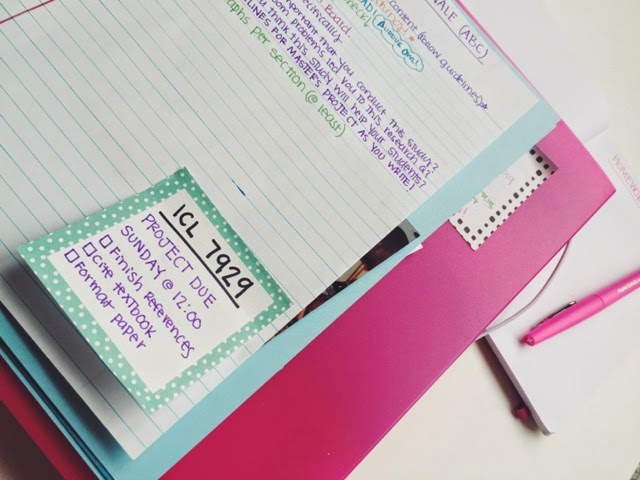 NALE (ABC)
content (follow guidelines)*
Board
(Awesome One!)
important that you conduct this study?
problems led you to this research q?
you think this study will help your students?
LINES FOR MASTERS PROJECT AS YOU WRITE!
aphs per section (@ least)
ICL 7929
PROJECT DUE
SUNDAY @ 12:00
☐ Finish References
☐ Cite textbook
☐ Format paper